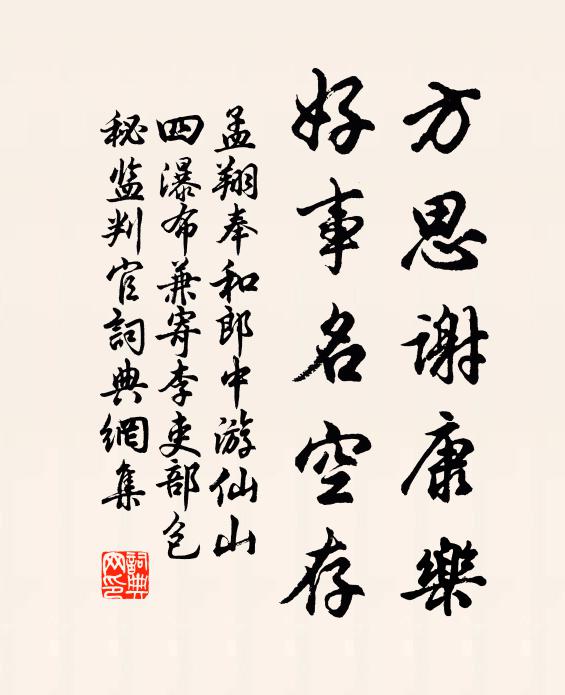 方思谢康樂
好事名空存
孟翔奉和郎中游仙山
四瀑布兼寄李吏部包
秘监判官詞典網集
詞典网印